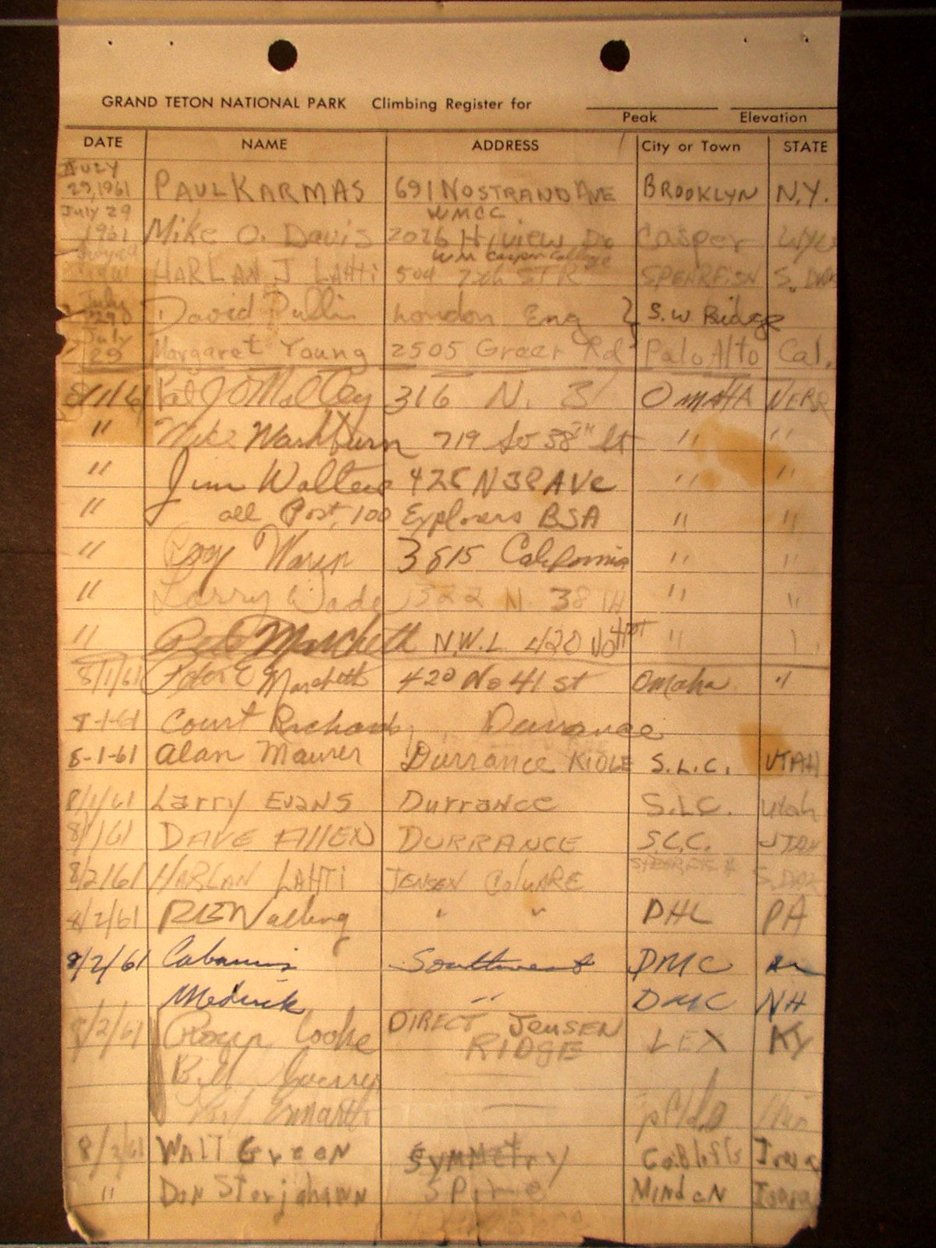 GRAND TETON NATIONAL PARK Climbing Register for
Peak Elevation
DATE NAME ADDRESS City or Town STATE
JULY 29, 1961 PAUL KARMAS 691 NOSTRAND AVE BROOKLYN N.Y.
WMCC
July 29 1961 Mike O. Davis 2026 Hiview Dr Casper WYO
HARLAN J LAHTI 504 7th STR SPEARFISH S. DAK
July 29 David Pullin London Eng } S.W Ridge
July 29 Margaret Young 2505 Greer Rd Palo Alto Cal.
8/1/61 316 N. 31 OMAHA NEBR
" Mike Washburn 719 So 38TH St " "
" Jim Walters 425 N 38 AVE " "
" all Post 100 Explorers BSA " "
" 3615 California " "
" Larry Wade 1322 N. 38 TH " "
" Pete Marchetti N.W.L. 420 No "
8/1/61 Peter Marchetti 420 No 41 st Omaha "
8-1-61 Court Richards, Durrance
8-1-61 Alan Maurer Durrance RIDGE S.L.C. UTAH
8/1/61 Larry EVANS Durrance S.LC. Utah
8/1/61 DAVE ALLEN DURRANCE S.L.C. UTAH
8/2/61 HARLAN LAHTI JENSEN COLUARE SPEARFISH S. DAK
8/2/61 " " DHL PA
8/2/61 Cabanis Southwest DMC
Medrick " DMC NH
8/2/61 Roger Cooke DIRECT JENSEN RIDGE LEX KY
Bill
8/2/61 WALT GrEEN SYMMEtry Co.Blfs Iowa
" Don Storjohann SPire MindeN Iowa